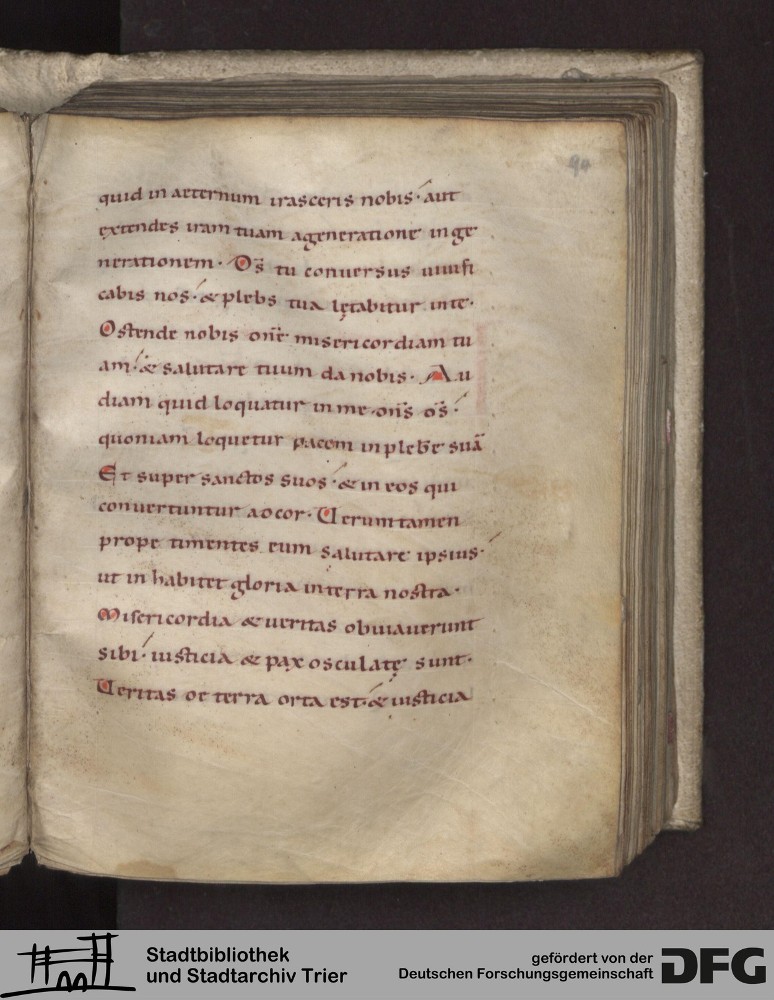 94
quid in aeternum irasceris nobis· aut
extendes iram tuam a generatione in ge
nerationem· Ds̄ tu conuersus uiuifi
cabis nos· & plebs tua lętabitur in te·
Ostende nobis dn̄e misericordiam tu
am· & salutare tuum da nobis· Au
diam quid loquatur in me dn̄s ds̄·
quoniam loquetur pacem in plebē suā
Et super sanctos suos· & in eos qui
conuertuntur ad cor· Uerum tamen
prope timentes eum salutare ipsius·
ut in habitet gloria in terra nostra·
Misericordia & ueritas obuiauerunt
sibi· iusticia & pax osculatę sunt·
Ueritas de terra orta est· & iusticia
Stadtbibliothek
und Stadtarchiv Trier
gefördert von der
Deutschen Forschungsgemeinschaft
DFG